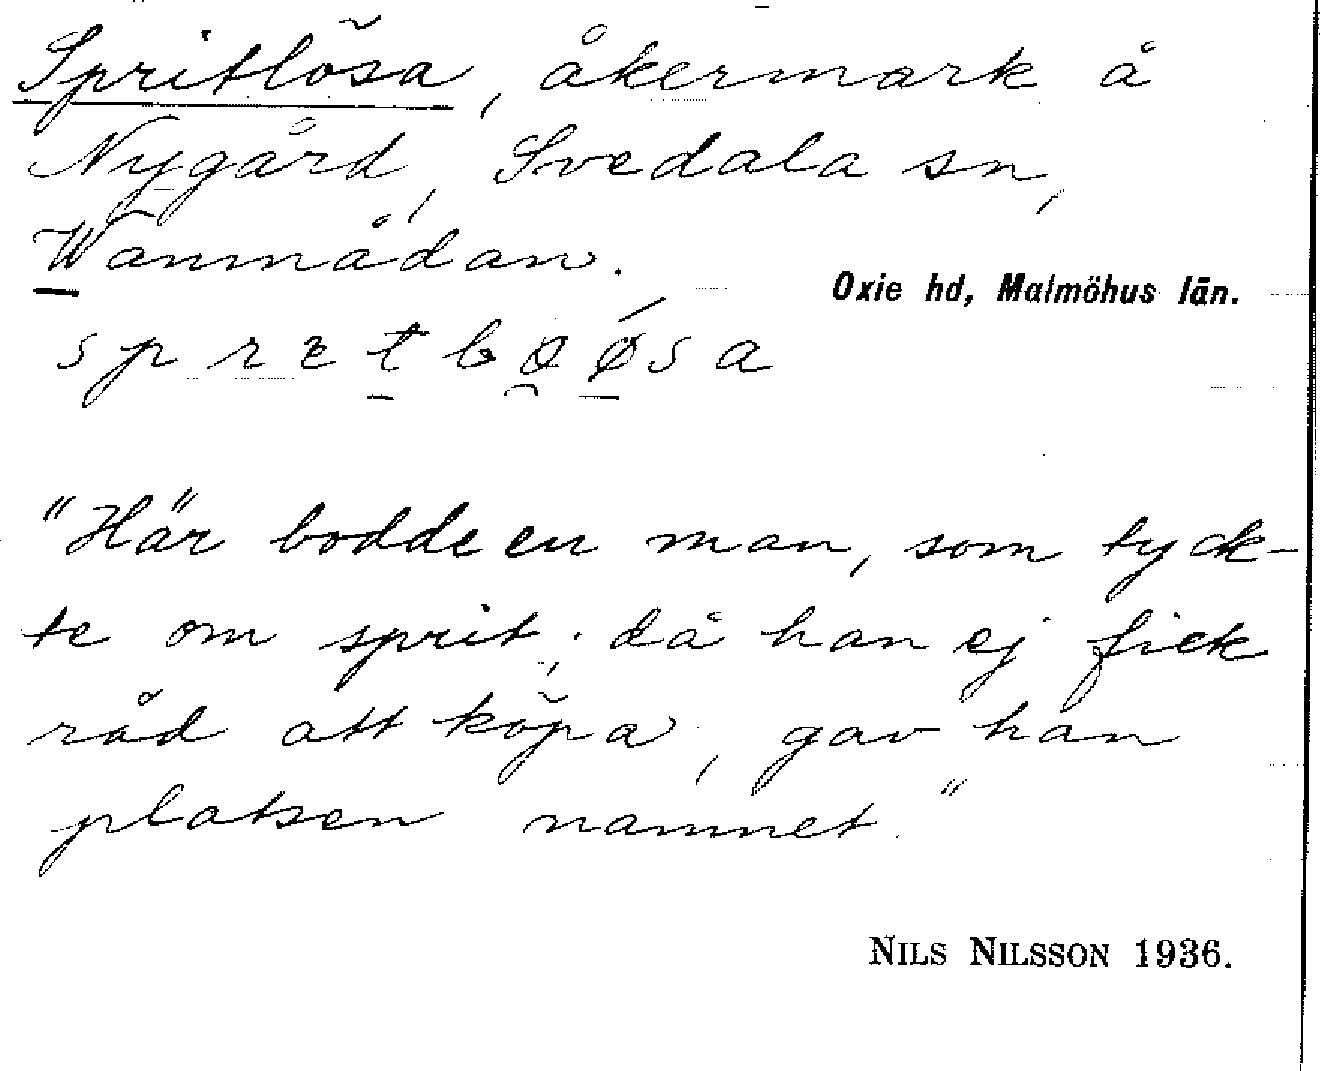 Spritlösa, åkermark å
Nygård, Svedala sn,
Wanmådan.
Oxie hd, Malmöhus län.
"Här bodde en man, som tyck-
te om sprit; då han ej fick
råd att köpa, gav han
platsen namnet."
NILS NILSSON 1936.